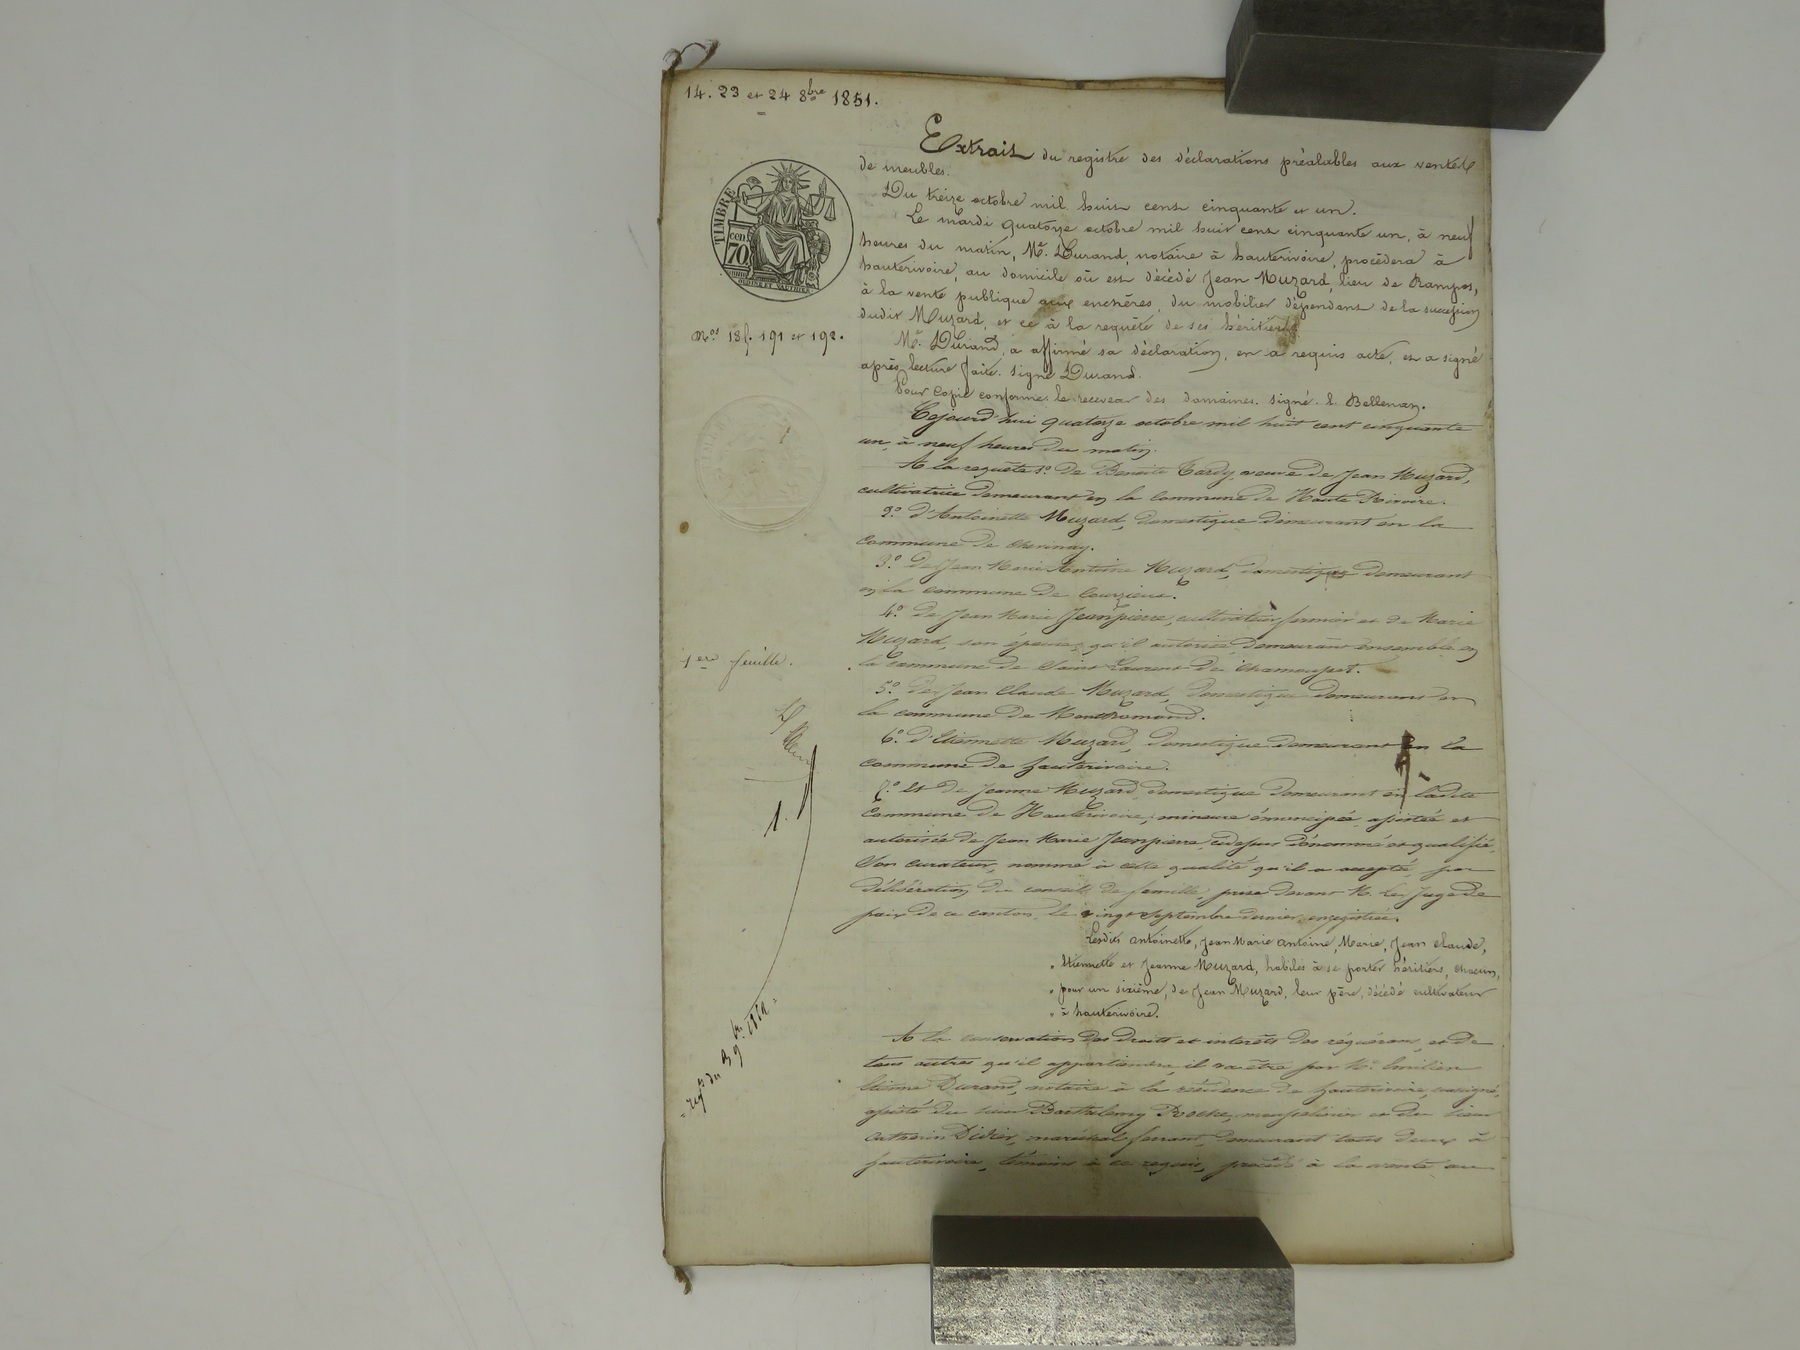 14. 23 et 24 8bre 1851.
Extrait du registre des déclarations préalables aux ventes
de meubles.
Du treize octobre mil huit cent cinquante et un.
Le mardi quatorze octobre mil huit cent cinquante un, à neuf
heures du matin, Me. Durand, notaire à hauterivoire, procèdera à
hauterivoire, au domicile où est décédé Jean Muzard, lieu de Rampos,
à la vente publique aux enchères, du mobilier dépendant de la succession
dudit Muzard, et ce à la requête de ses héritiers
Me. Durand, a affirmé sa déclaration, en a requis acte, et a signé
après lecture faite. Signé Durand.
Pour copie conforme. le receveur des domaines. signé. L. Bellenan.
TIMBRE
cen.
70
Nos. 18f. 191 et 192.
Cejourd'hui quatorze octobre mil huit cent cinquante
un, à neuf heures du matin.
A la requête 1o. de Benoite Tardy, veuve de Jean Muzard,
cultivatrice demeurant en la commune de Haute Rivoire.
2o. d'Antoinette Muzard, domestique demeurant en la
commune de Chevinay.
3o. de Jean Marie Antoine Muzard, domestique demeurant
en la commune de Courzieux.
4o. de Jean Marie Jeanpierre, cultivateur fermier et de Marie
Muzard, son épouse, qu'il autorise, demeurant ensemble en
la commune de Saint Laurent de Chamousset.
5o. de Jean Claude Muzard, domestique demeurant en
la commune de Montromand.
6o. d'Etiennette Muzard, domestique demeurant en la
commune de hauterivoire.
7o. et de Jeanne Muzard domestique demeurant en ladite
Commune de Hauterivoire, mineure émancipée, assistée et
autorisée de Jean Marie Jeanpierre, cidessus dénommé et qualifié,
Son curateur, nommé à cette qualité qu'il a accepté, par
délibération du conseil de famille, prise devant M. le Juge de
paix de ce canton, le vingt septembre dernier, enregistrée.
Lesdits Antoinette, Jean Marie Antoine, Marie, Jean Claude,
Etiennette et Jeanne Muzard, habiles à se porter héritiers, chacun,
pour un sixième, de Jean Muzard, leur père, décédé cultivateur
à hauterivoire.
A la conservation des droits et intérêts des requérans, et de
tous autres qu'il appartiendra, il va être par Me. Emilien
Etienne Durand, notaire à la résidence de hauterivoire, soussigné,
assisté du sieur Barthelemy Roche, et du sieur
Catherin Didier, maréchal ferrant, demeurant tous deux à
hauterivoire, témoins à ce requis, procédé à la vente au
1ere feuille.
1.